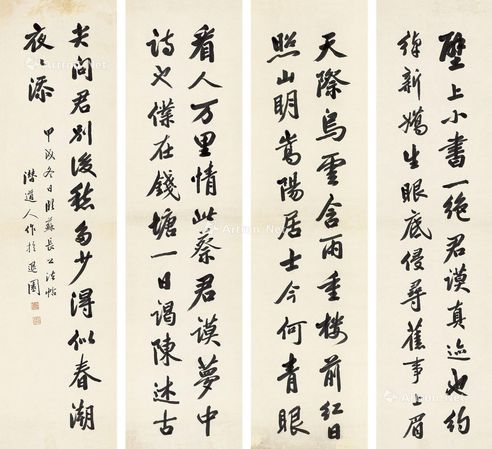 天際烏雲含雨重樓前紅日
照山明嵩陽居士今何青眼
看人万里情此蔡君謨夢中
詩也僕在錢塘一日謁陳述古
壁上小書一絕君謨真迹也約
綽新嬌生眼底侵尋舊事上眉
尖問君別後愁多少得似春潮
夜〻添
甲戌冬日臨蘇長公法帖
道人作於退園